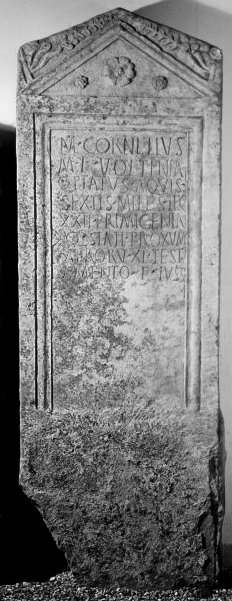 M CORNELIVS
M F VOLTINIA
OPTATVS AQVIS
SEXTIS MILES LEG
XXII PRIMIGENIA
STATI PROXVMI
XI TEST
AMENTO F IVS